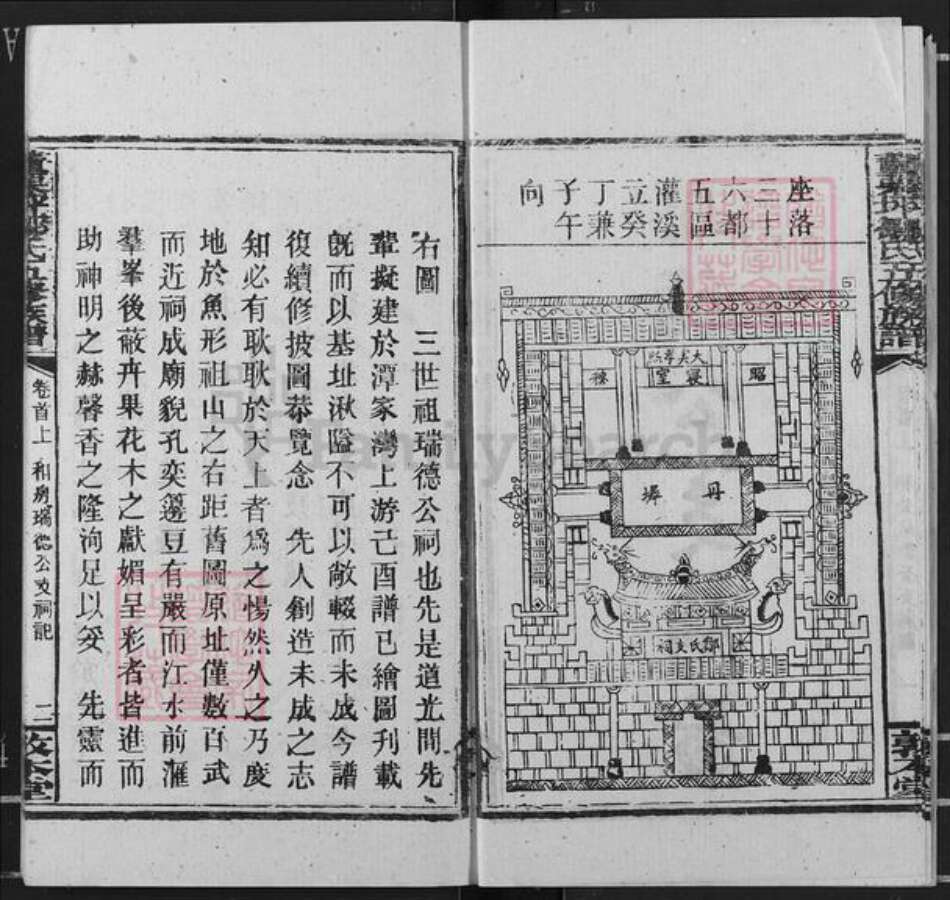 座落
三十
六都
五區
灌溪
立癸
丁兼
子午
向
昭
大夫專祠
寢室
穆
丹墀
鄧氏支祠
右圖　三世祖瑞德公祠也先是道光間先
輩擬建於潭家灣上游己酉譜已繪圖刊載
旣而以基址湫隘不可以敞輟而未成今譜
復續修披圖恭覽念　先人創造未成之志
知必有耿耿於天上者爲之惕然久之乃度
地於魚形祖山之右距舊圖原址僅數百武
而近祠成廟貌孔奕籩豆有嚴而江水前滙
羣峯後蔽卉果花木之獻媚呈彩者皆進而
助神明之赫馨香之隆洵足以妥　先靈而
卷首上　和房瑞德公支祠記　二
敦本堂
FamilySearch